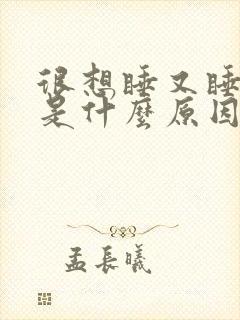 很想睡又睡
是什麼原因
孟長曦